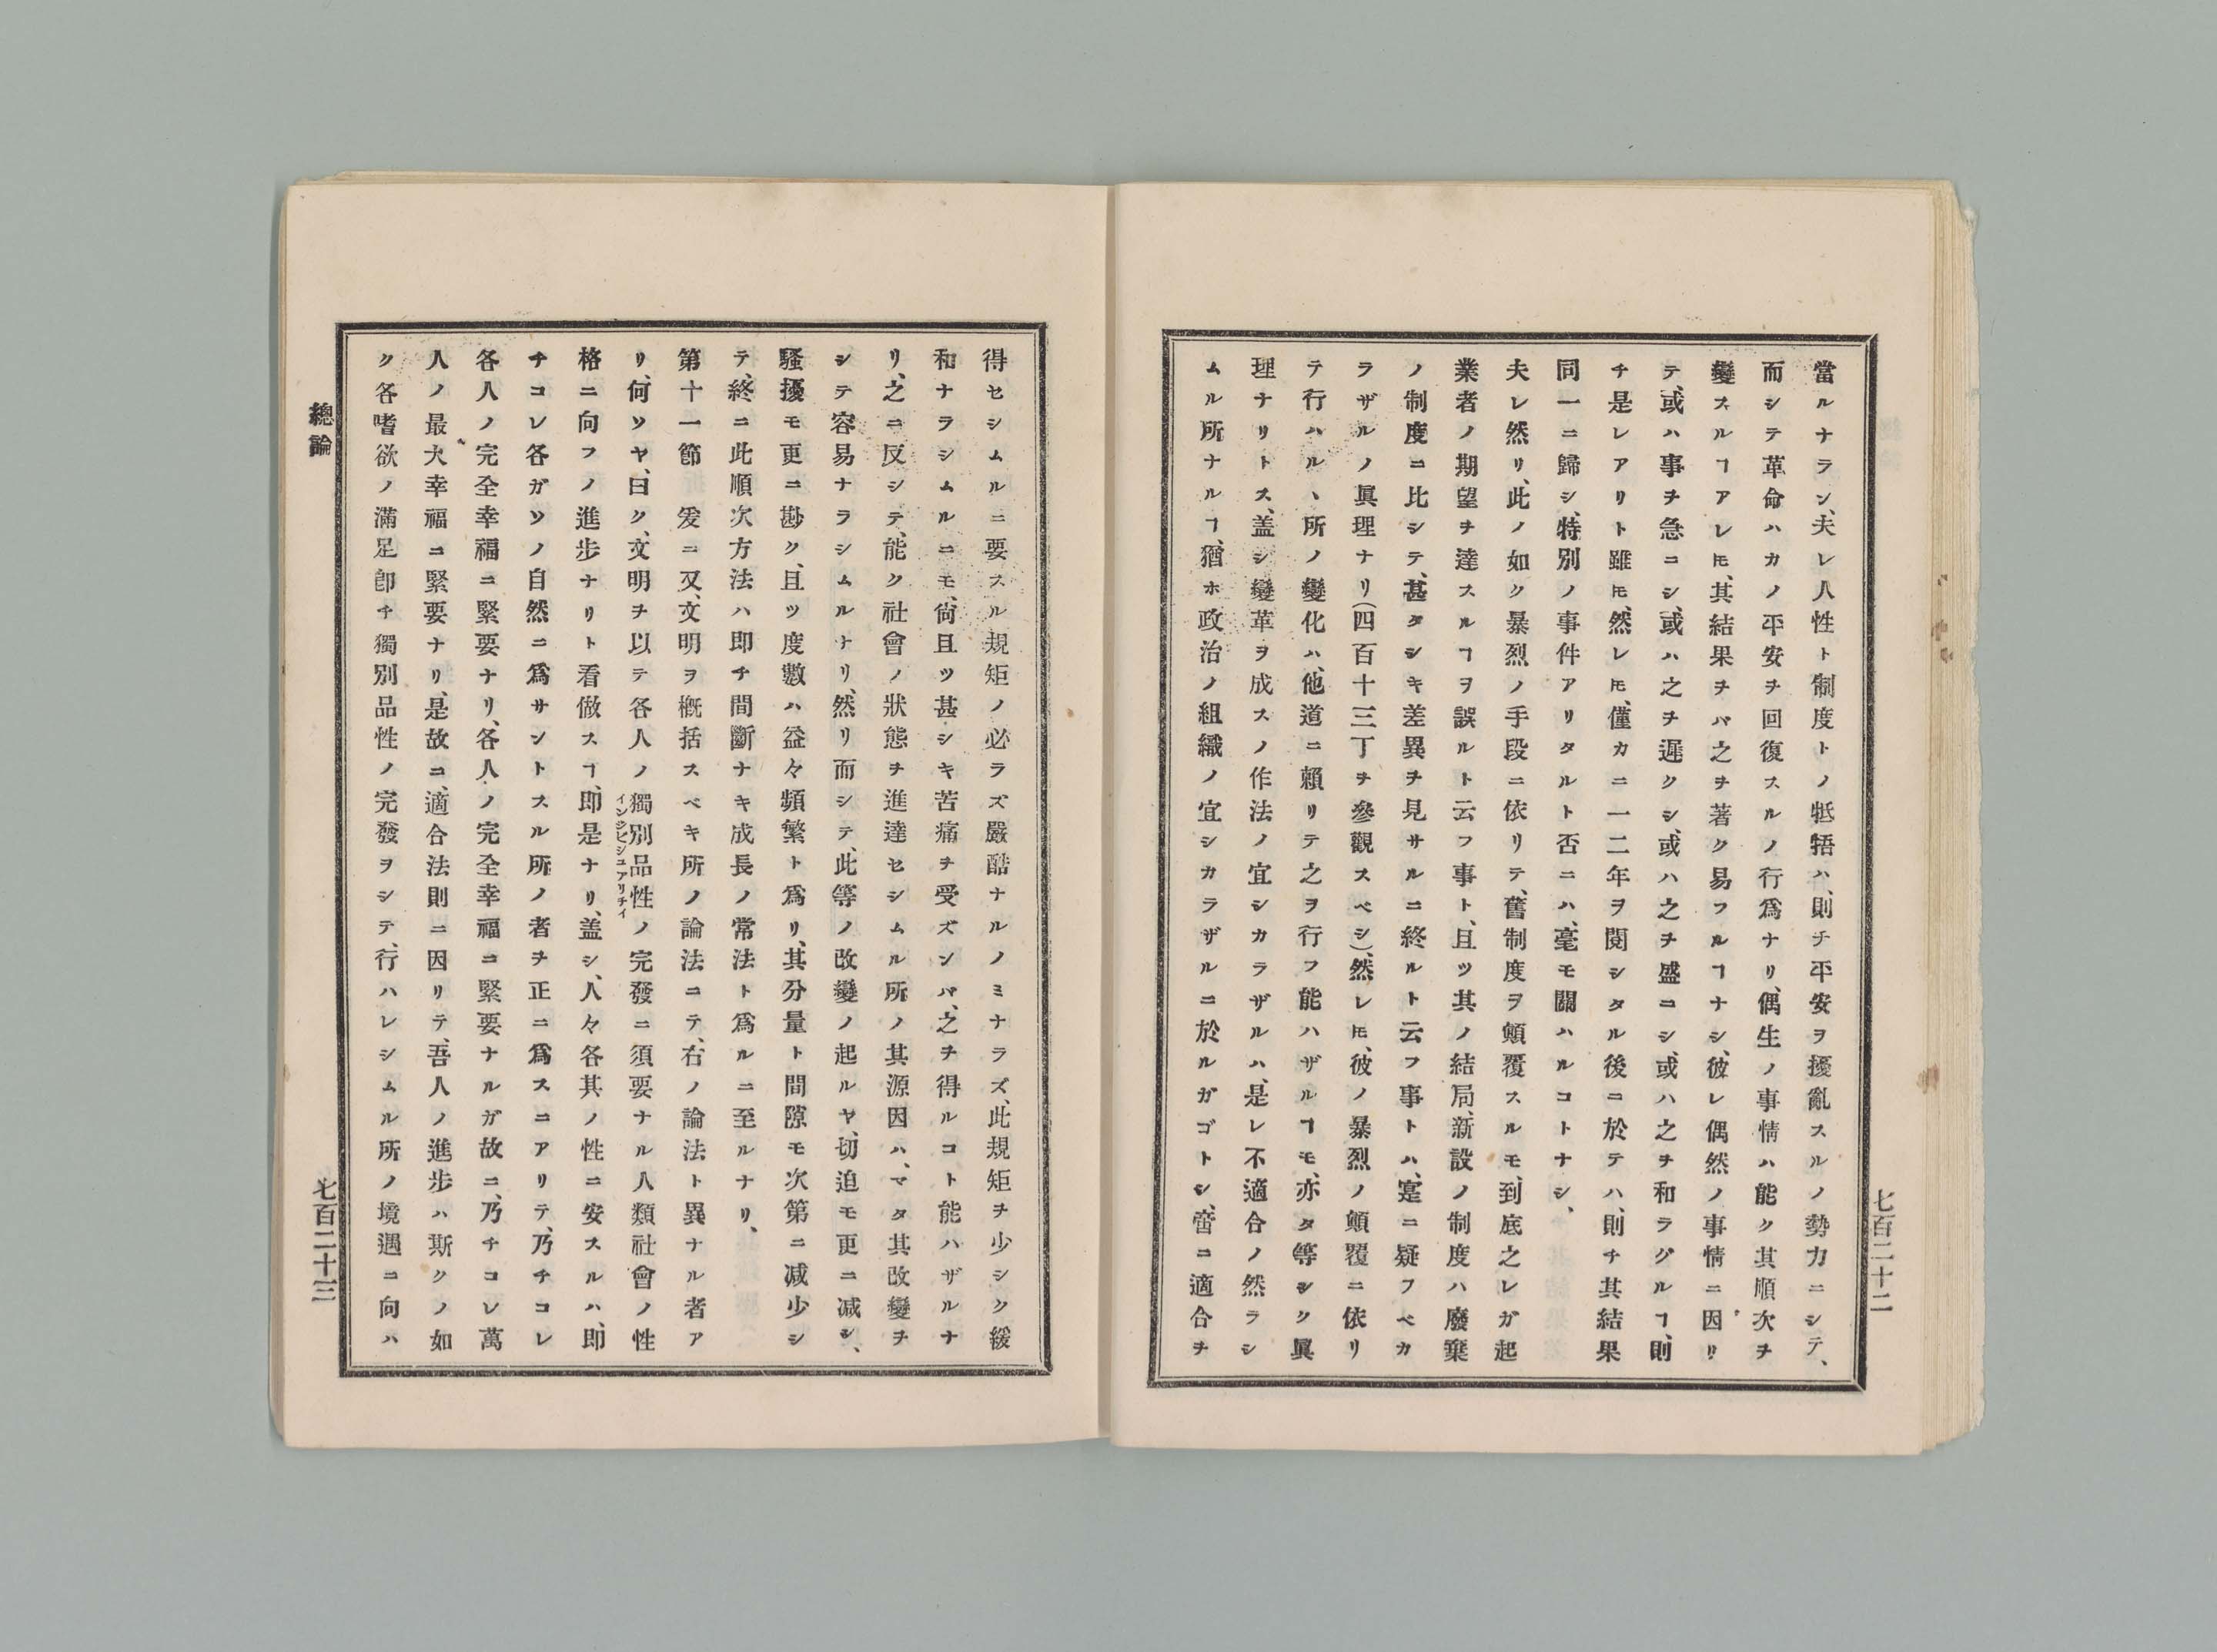 當ルナラン、夫レ人性ト制度トノ牴牾ハ、則チ平安ヲ擾亂スルノ勢力ニシテ、
而シテ革命ハカノ平安ヲ回復スルノ行爲ナリ、偶生ノ事情ハ能ク其順次ヲ
變スルヿアレ𪜈、其結果ヲバ之ヲ著ク易フルヿナシ、彼レ偶然ノ事情ニ因リ
テ、或ハ事ヲ急ニシ、或ハ之ヲ遲クシ、或ハ之ヲ盛ニシ、或ハ之ヲ和ラグルヿ、則
チ是レアリト雖𪜈、然レ𪜈、僅カニ一二年ヲ閱シタル後ニ於テハ、則チ其結果
同一ニ歸シ、特別ノ事件アリタルト否ニハ、毫モ關ハルコトナシ、
夫レ然リ、此ノ如ク暴烈ノ手段ニ依リテ、舊制度ヲ顛覆スルモ、到底之レガ起
業者ノ期望ヲ達スルヿヲ誤ルト云フ事ト、且ツ其ノ結局、新設ノ制度ハ廢棄
ノ制度ニ比シテ、甚タシキ差異ヲ見サルニ終ルト云フ事トハ、寔ニ疑フベカ
ラザルノ眞理ナリ(四百十三丁ヲ參觀スベシ)、然レ𪜈、彼ノ暴烈ノ顛覆ニ依リ
テ行ハルヽ所ノ變化ハ、他道ニ賴リテ之ヲ行フ能ハザルヿモ、亦タ等シク眞
理ナリトス、盖シ變革ヲ成スノ作法ノ宜シカラザルハ、是レ不適合ノ然ラシ
ムル所ナルヿ、猶ホ政治ノ組織ノ宜シカラザルニ於ルガゴトシ、啻ニ適合ヲ
七百二十二
得セシムルニ要スル規矩ノ必ラズ嚴酷ナルノミナラズ、此規矩ヲ少シク緩
和ナラシムルニモ、尙且ツ甚シキ苦痛ヲ受ズンバ、之ヲ得ルコト能ハザルナ
リ、之ニ反シテ、能ク社會ノ狀態ヲ進達セシムル所ノ其源因ハ、マタ其改變ヲ
シテ容易ナラシムルナリ、然リ而シテ、此等ノ改變ノ起ルヤ、切迫モ更ニ減シ、
騷擾モ更ニ尠ク、且ツ度數ハ益々頻繁ト爲リ、其分量ト間隙モ次第ニ減少シ
テ、終ニ此順次方法ハ即チ間斷ナキ成長ノ常法ト爲ルニ至ルナリ、
第十一節　爰ニ又、文明ヲ概括スベキ所ノ論法ニテ、右ノ論法ト異ナル者ア
リ、何ソヤ、曰ク、文明ヲ以テ各人ノ獨別品性インヂビジュアリチイノ完發ニ須要ナル人類社會ノ性
格ニ向フノ進步ナリト看做スヿ、即是ナリ、盖シ、人々各其ノ性ニ安スルハ、即
チコレ各ガソノ自然ニ爲サントスル所ノ者ヲ正ニ爲スニアリテ、乃チコレ
各人ノ完全幸福ニ緊要ナリ、各人ノ完全幸福ニ緊要ナルガ故ニ、乃チコレ萬
人ノ最大幸福ニ緊要ナリ、是故ニ、適合法則ニ因リテ、吾人ノ進步ハ斯クノ如
ク各嗜欲ノ滿足即チ獨別品性ノ完發ヲシテ、行ハレシムル所ノ境遇ニ向ハ
總論
七百二十三